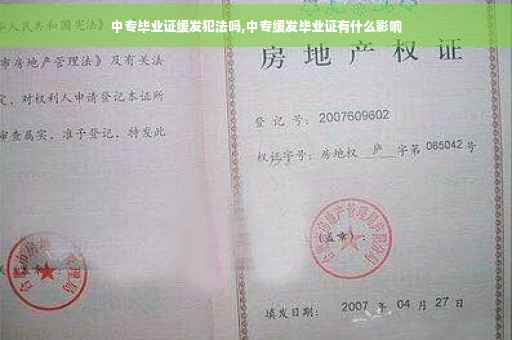 中专毕业证缓发犯法吗,中专缓发毕业证有什么影响
华人民共和国宪法》
市房地产管理法》及有关法
定，对权利人申请登记本证所
审查属实，准予登记，特发此
房地产权
登记号：2007609602
权证字号：房地权 庐 字第 085042 号
(盖章)：
填发日期：2007 年 04 月 27 日